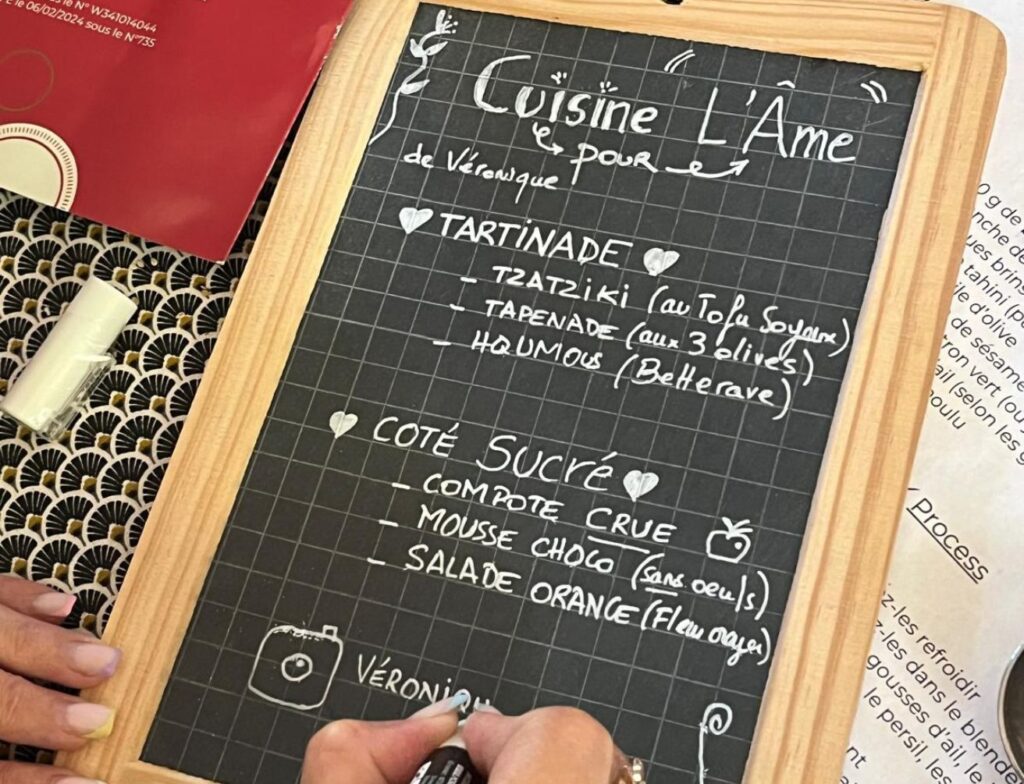 le N° W341014044
le 06/02/2024 sous le N°735
Cuisine " L'Âme "
pour
de Véronique
TARTINADE
- TZATZIKI (au Tofu Soyeux)
- TAPENADE (aux 3 olives)
- HOUMOUS (Betterave)
COTÉ SUCRÉ
- COMPOTE CRUE
- MOUSSE CHOCO (sans oeufs)
- SALADE ORANGE (Fleur oranger)
VÉRONIQU
0 g de
nche de
ues brins
tahini (p
d'olive
de sésame
tron vert (ou
ail (selon les g
moulu
Process
z-les refroidir
z-les dans le blende
gousses d'ail, le
le persil, les
nt